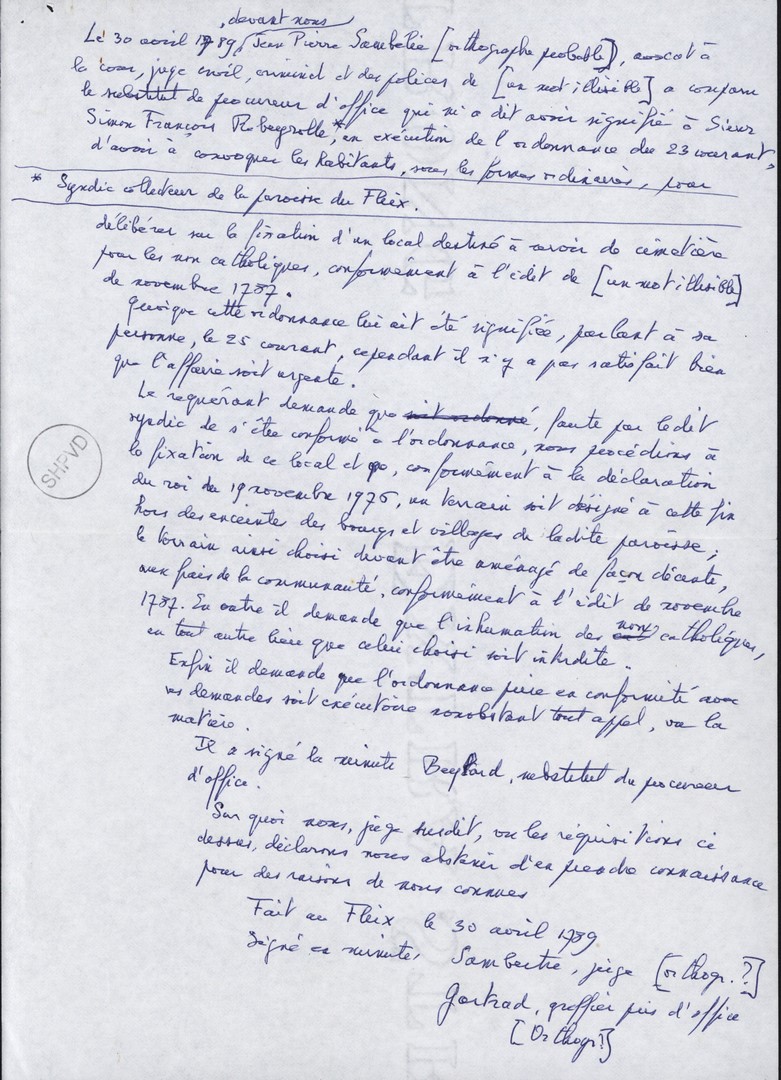 , devant nous
Le 30 avril 1789, Jean Pierre Sambelie [orthographe probable], avocat à
la cour, juge civil, criminel et des polices de [un mot illisible] a comparu
le substitut de procureur d'office qui m'a dit avoir signifié à Sieur
Simon François Robeyrolle*, en exécution de l'ordonnance du 23 courant,
d'avoir à convoquer les habitants, sous les formes ordinaires, pour
* Syndic collecteur de la paroisse du Fleix.
délibérer sur la fixation d'un local destiné à servir de cimetière
pour les non catholiques, conformément à l'édit de [un mot illisible]
de novembre 1787.
Quoique cette ordonnance lui ait été signifiée, parlant à sa
personne, le 25 courant, cependant il n'y a pas satisfait bien
que l'affaire soit urgente.
Le requérant demande que soit ordonné, faute par ledit
syndic de s'être conformé à l'ordonnance, nous procédions à
la fixation de ce local et que, conformément à la déclaration
du roi du 19 novembre 1976, un terrain soit désigné à cette fin
hors des enceintes des bourgs et villages de ladite paroisse ;
le terrain ainsi choisi devant être aménagé de façon décente,
aux frais de la communauté, conformément à l'édit de novembre
1787. En outre il demande que l'inhumation des non catholiques,
en tout autre lieu que celui choisi soit interdite.
Enfin il demande que l'ordonnance prise en conformité avec
ses demandes soit exécutoire nonobstant tout appel, vu la
matière.
Il a signé la minute , substitut du procureur
d'office.
Sur quoi nous, juge susdit, vu les réquisitions ci
dessus, déclarons nous abstenir d'en prendre connaissance
pour des raisons de nous connues
Fait au Fleix le 30 avril 1789.
Signé en minute, , juge [orthogr. ?]
, greffier pris d'office
[Orthogr ?]
SHPVD